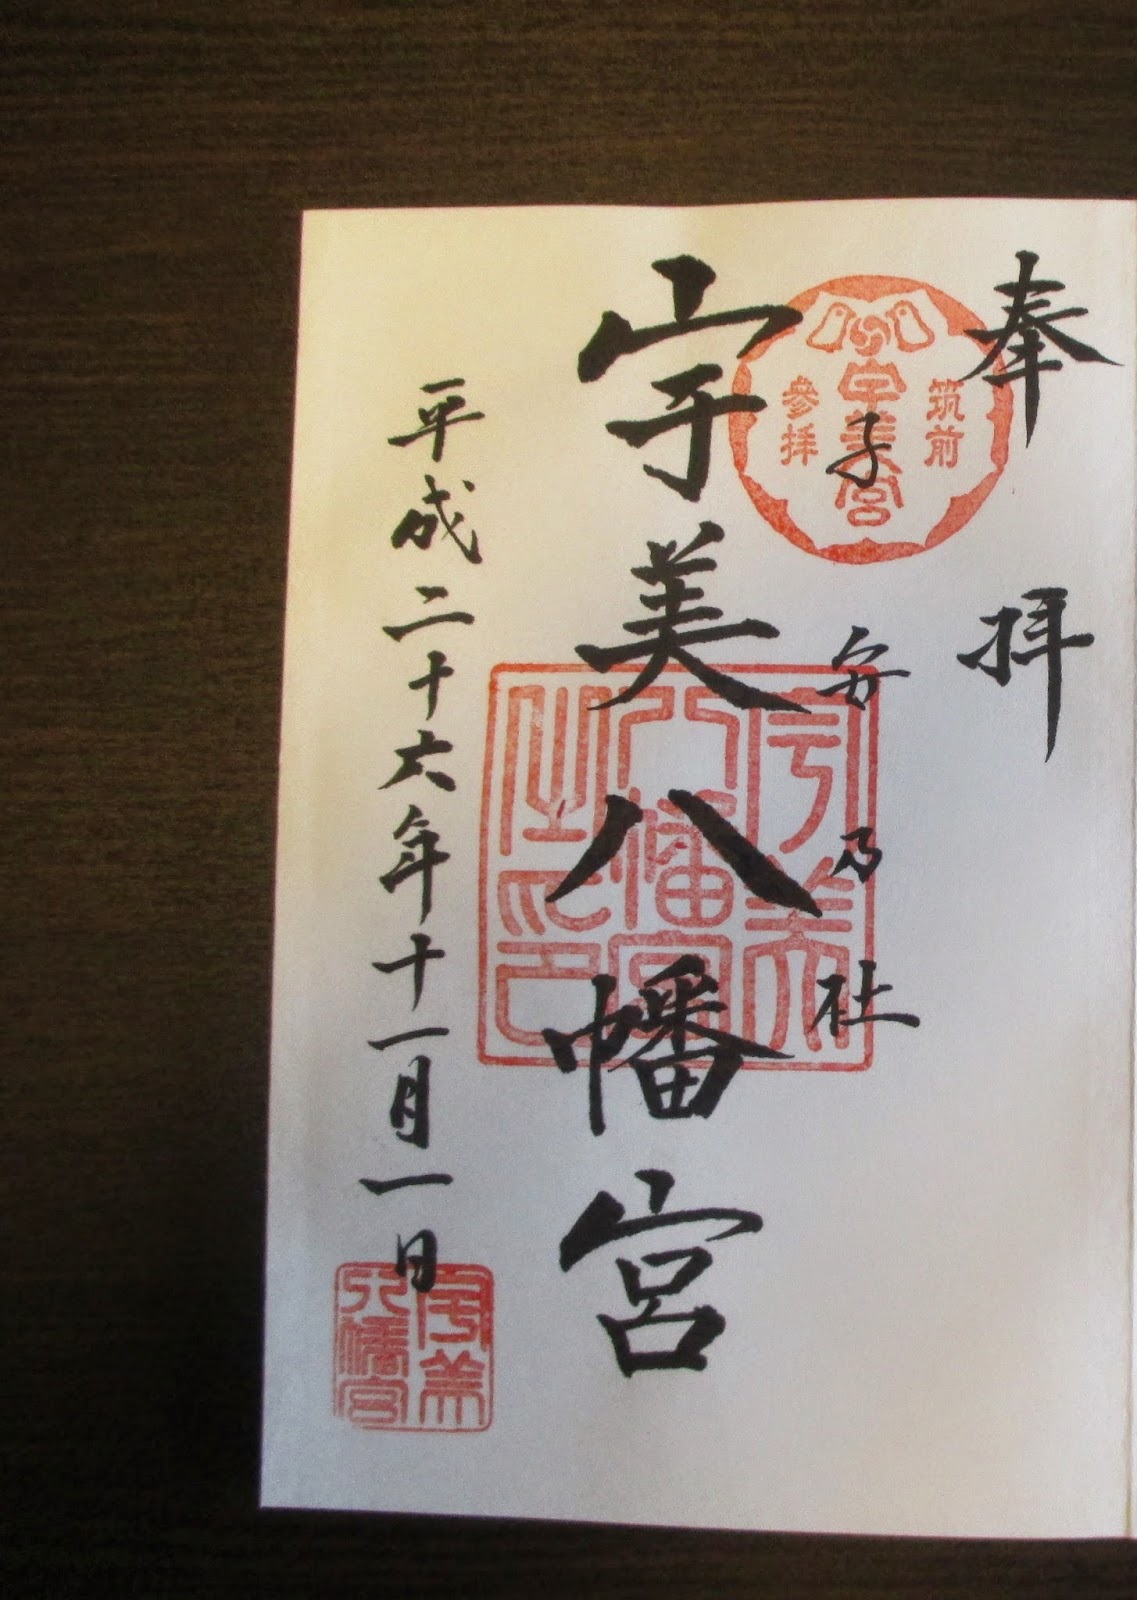 奉拝
筑前
宇美宮
参拝
子安乃社
宇美八幡宮
宇美
八幡宮
之印
平成二十六年十一月一日
宇美
八幡宮